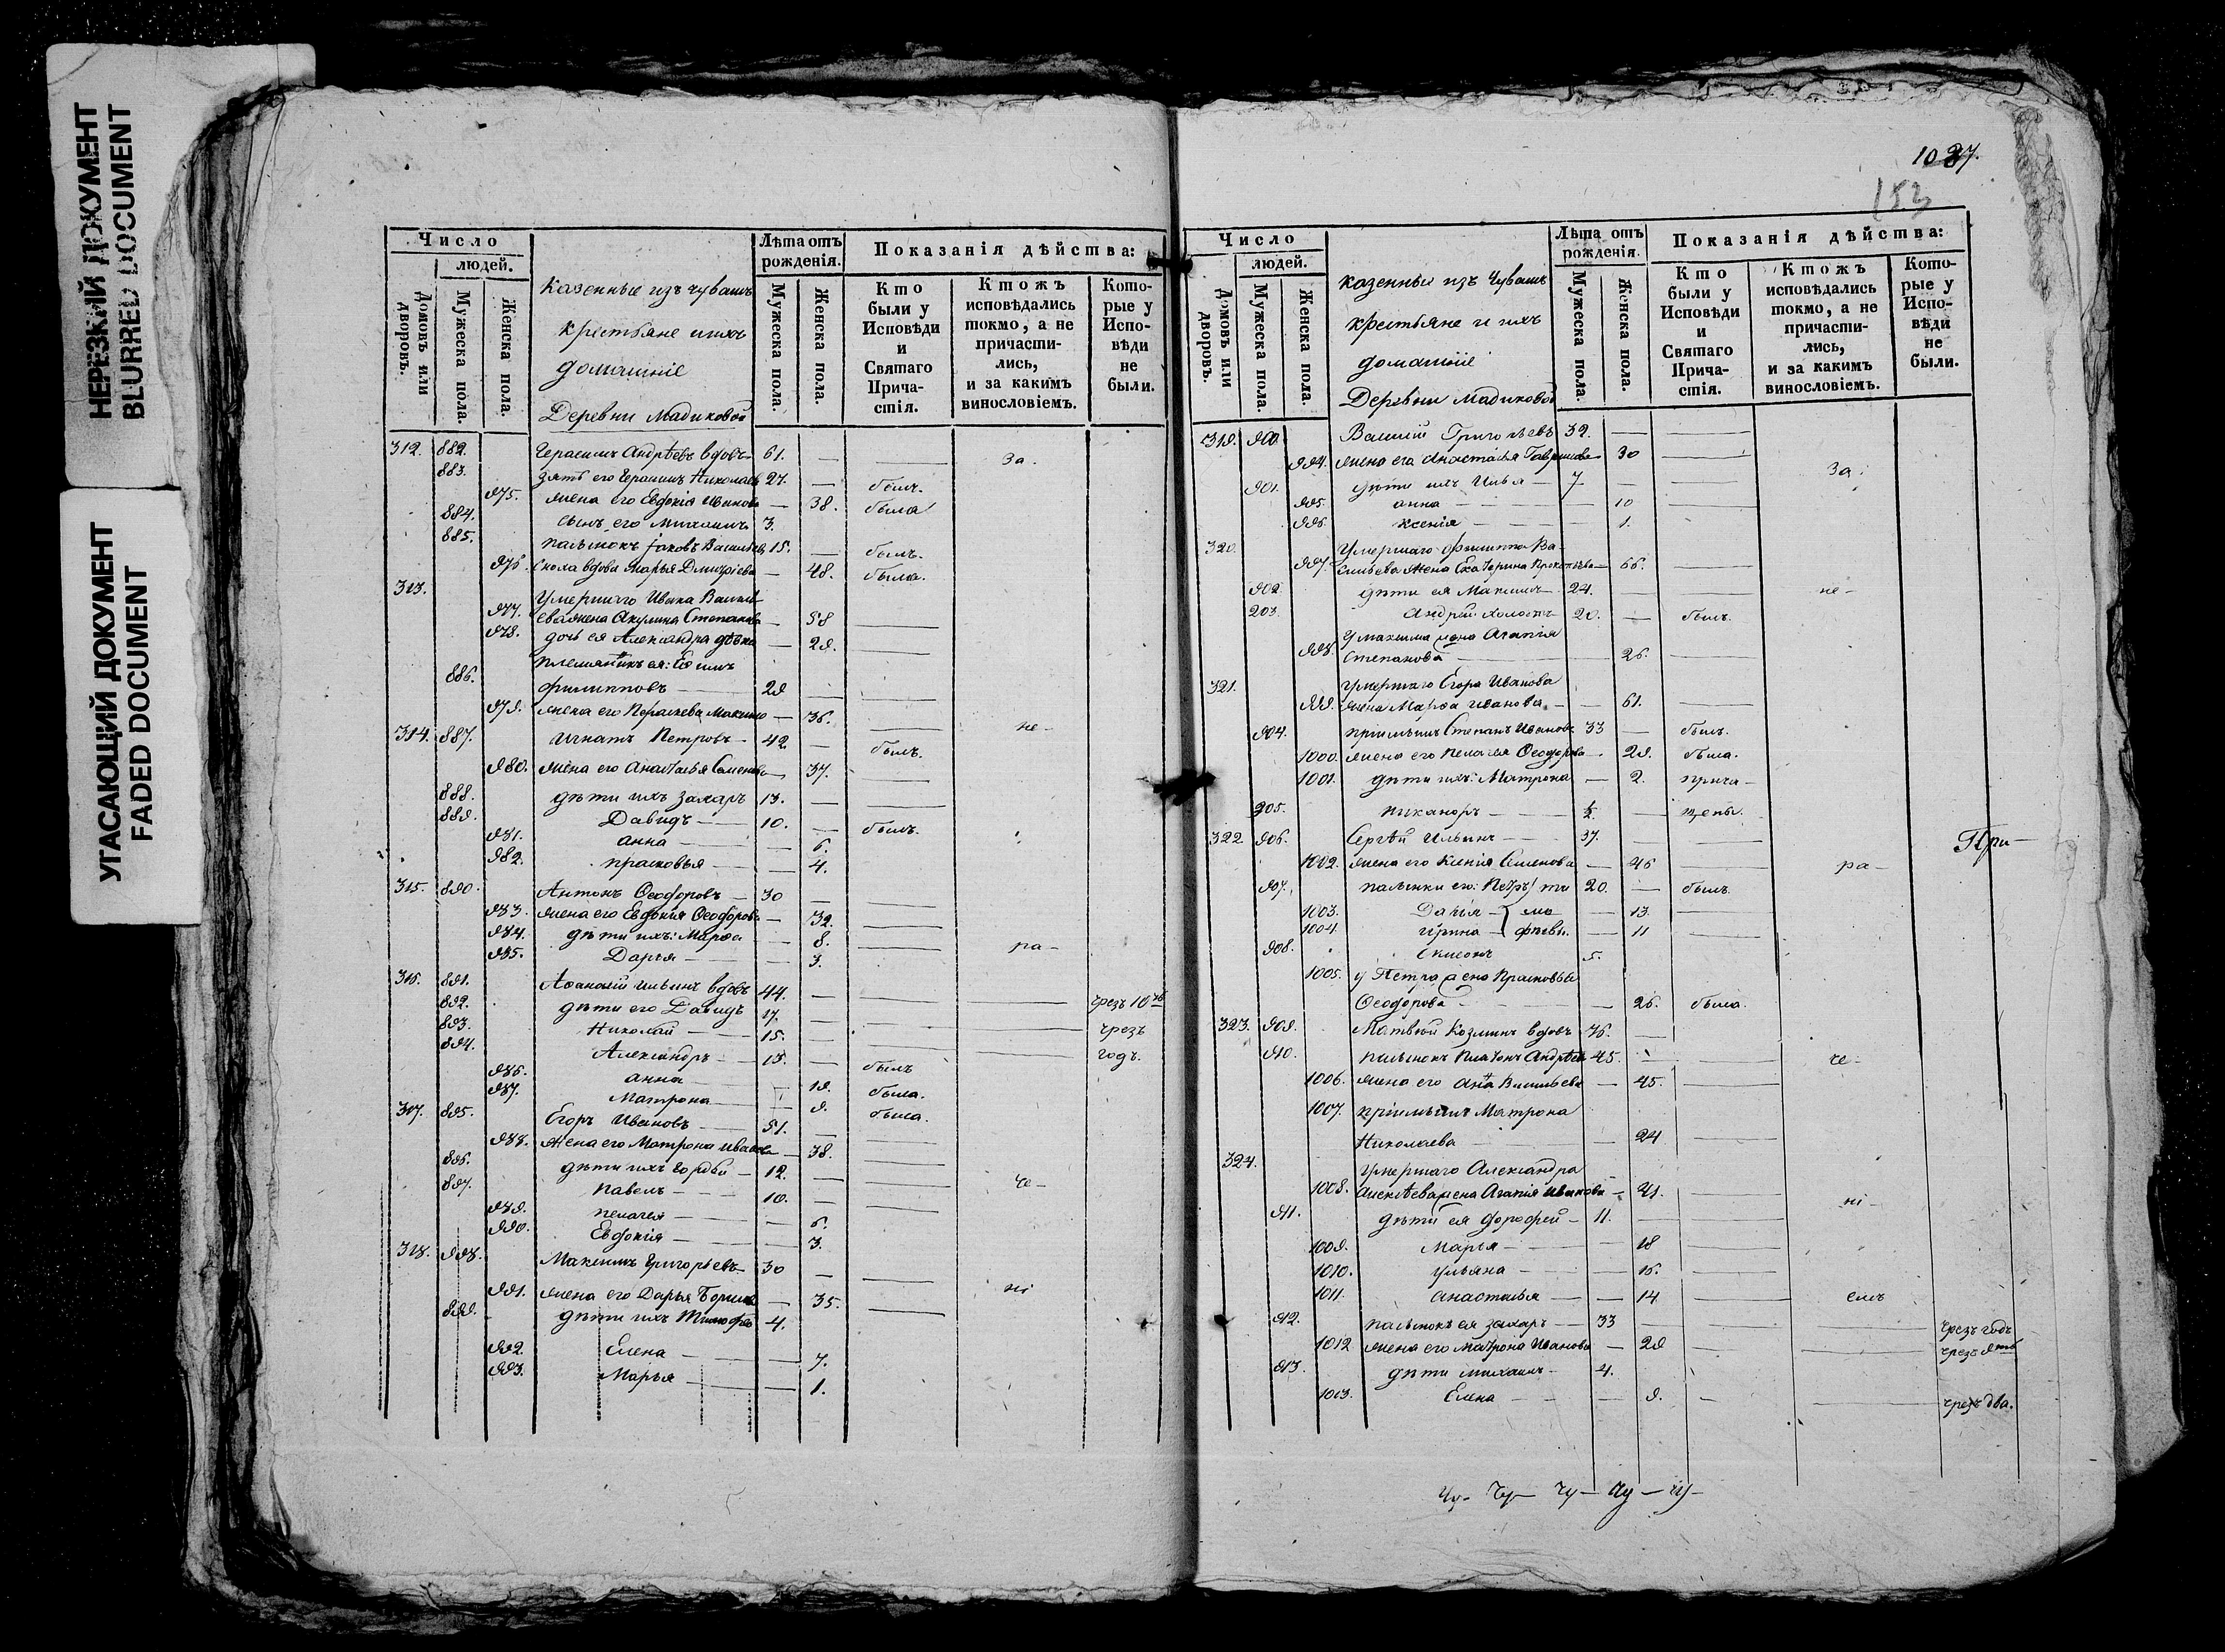 НЕРЕЗКИЙ ДОКУМЕНТ
BLURRED DOCUMENT
УГАСАЮЩИЙ ДОКУМЕНТ
FADED DOCUMENT
Число
людей.
Домовъ или дворовъ.
Мужеска пола.
Женска пола.
Казенные изъ чувашъ
крестьяне и ихъ
домашніе
Деревни Мадиковой
Лѣта отъ рожденія.
Мужеска пола.
Женска пола.
Показанія дѣйства:
Кто были у Исповѣди и Святаго Причастія.
Ктожъ исповѣдались токмо, а не причастились, и за какимъ винословіемъ.
Которые у Исповѣди не были.
312. 882. Герасимъ Андрѣевъ вдовъ 61. — За.
883. зять его Герасимъ Николаевъ 27. — былъ.
975. жена его Евдокія Иванова — 38. была
884. сынъ его Михаилъ 3.
885. пасынокъ Іаковъ Васильевъ 15. — былъ.
976. вдова Марья Дмитріева — 48. была.
313. Умершаго Ивана Василь-
977. ева жена Акулина Степанова — 58
978. дочь ея Александра дѣвка — 29.
племянникъ ея:
886. Филипповъ — 29
979. жена его Параскева Максимо — 36.
314. 887. Игнатъ Петровъ 42. — былъ. не-
980. жена его Анастасья Семенова — 37.
888. дѣти ихъ Захаръ 13. —
889. Давидъ — 10. — былъ.
981. анна — 6.
982. прасковья — 4.
315. 890. Антонъ Ѳеодоровъ — 30
983. жена его Евдокія Ѳеодорова — 32.
984. дѣти ихъ: Марѳа — 8. ра-
985. Дарья — 3.
316. 891. Аѳанасій Ильинъ вдовъ 44. — чрезъ 10ть
892. дѣти его Давидъ 17. — чрезъ
893. Николай — 15. — годъ.
894. Александръ — 13. — былъ
986. анна — 19. была.
987. Матрона — 9. была.
317. 895. Егоръ Ивановъ 51. —
988. жена его Матрона Иванова — 38.
896. дѣти ихъ 12. — че-
897. Павелъ — 10. —
989. пелагея — 6.
990. Евдокія — 3.
318. 898. Максимъ Григорьевъ 30 —
991. жена его Дарья — 35. ні
899. дѣти ихъ Тимоѳей 4.
992. Елена — 7.
993. Марья — 1.
1027.
153
Число
людей.
Домовъ или дворовъ.
Мужеска пола.
Женска пола.
казенные изъ Чувашъ
крестьяне и ихъ
домашніе
Деревни Мадиковой
Лѣта отъ рожденія.
Мужеска пола.
Женска пола.
Показанія дѣйства:
Кто были у Исповѣди и Святаго Причастія.
Ктожъ исповѣдались токмо, а не причастились, и за какимъ винословіемъ.
Которые у Исповѣди не были.
319. 900. Василій Григорьевъ 32. —
994. жена его Анастасья Гаврилова 30 За.
901. дѣти ихъ Илья — 7 —
995. анна — 10
996. ксенія — 1.
320. Умершаго Филиппа Ва-
997. сильева жена Екатерина Прокопьева — 66.
902 дѣти ея Максимъ 24. — не-
203. Андрей холостъ 20. — былъ.
У максима жена Агапія
998. Степанова — 26.
321. Умершаго Егора Иванова
999. жена Марѳа Иванова — 61.
904. пріемышъ Степанъ Ивановъ 33 — былъ.
1000. жена его Пелагея Ѳеодорова — 29. была.
1001. дѣти ихъ: Матрона — 2. прича-
905. Никаноръ — ½. — щены.
322 906. Сергѣй Ильинъ — 37. — При-
1002. жена его Ксенія Семенова — 46 ра-
907. пасынки его: Петръ ти 20. — былъ.
1003. Дарія мо — 13.
1004 Ирина фѣевы. — 11
908. Симеонъ 5.
1005. у Петра жена Прасковья
Ѳеодорова — 26. была.
323. 909. Матвѣй Козминъ вдовъ 76. —
910. пасынокъ Платонъ Андрѣевъ 45. че-
1006. жена его Анна Васильева — 45.
1007. пріемышъ Матрона
Николаева — 24
324. Умершаго Александра
1008. Алексѣева жена Агапія Иванова — 41. ні-
911. дѣти ея Дороѳей — 11. —
1009. Марья — 18
1010. Ульяна — 16.
1011. анастасья — 14 емъ
912. пасынокъ ея Захаръ — 33 — чрезъ годъ
1012 жена его Матрона Иванова — 29 — чрезъ 9ть
913. дѣти михаилъ — 4.
1013. Елена — 9. — чрезъ два.
Чу- Чу- Чу- Чу- Чу-